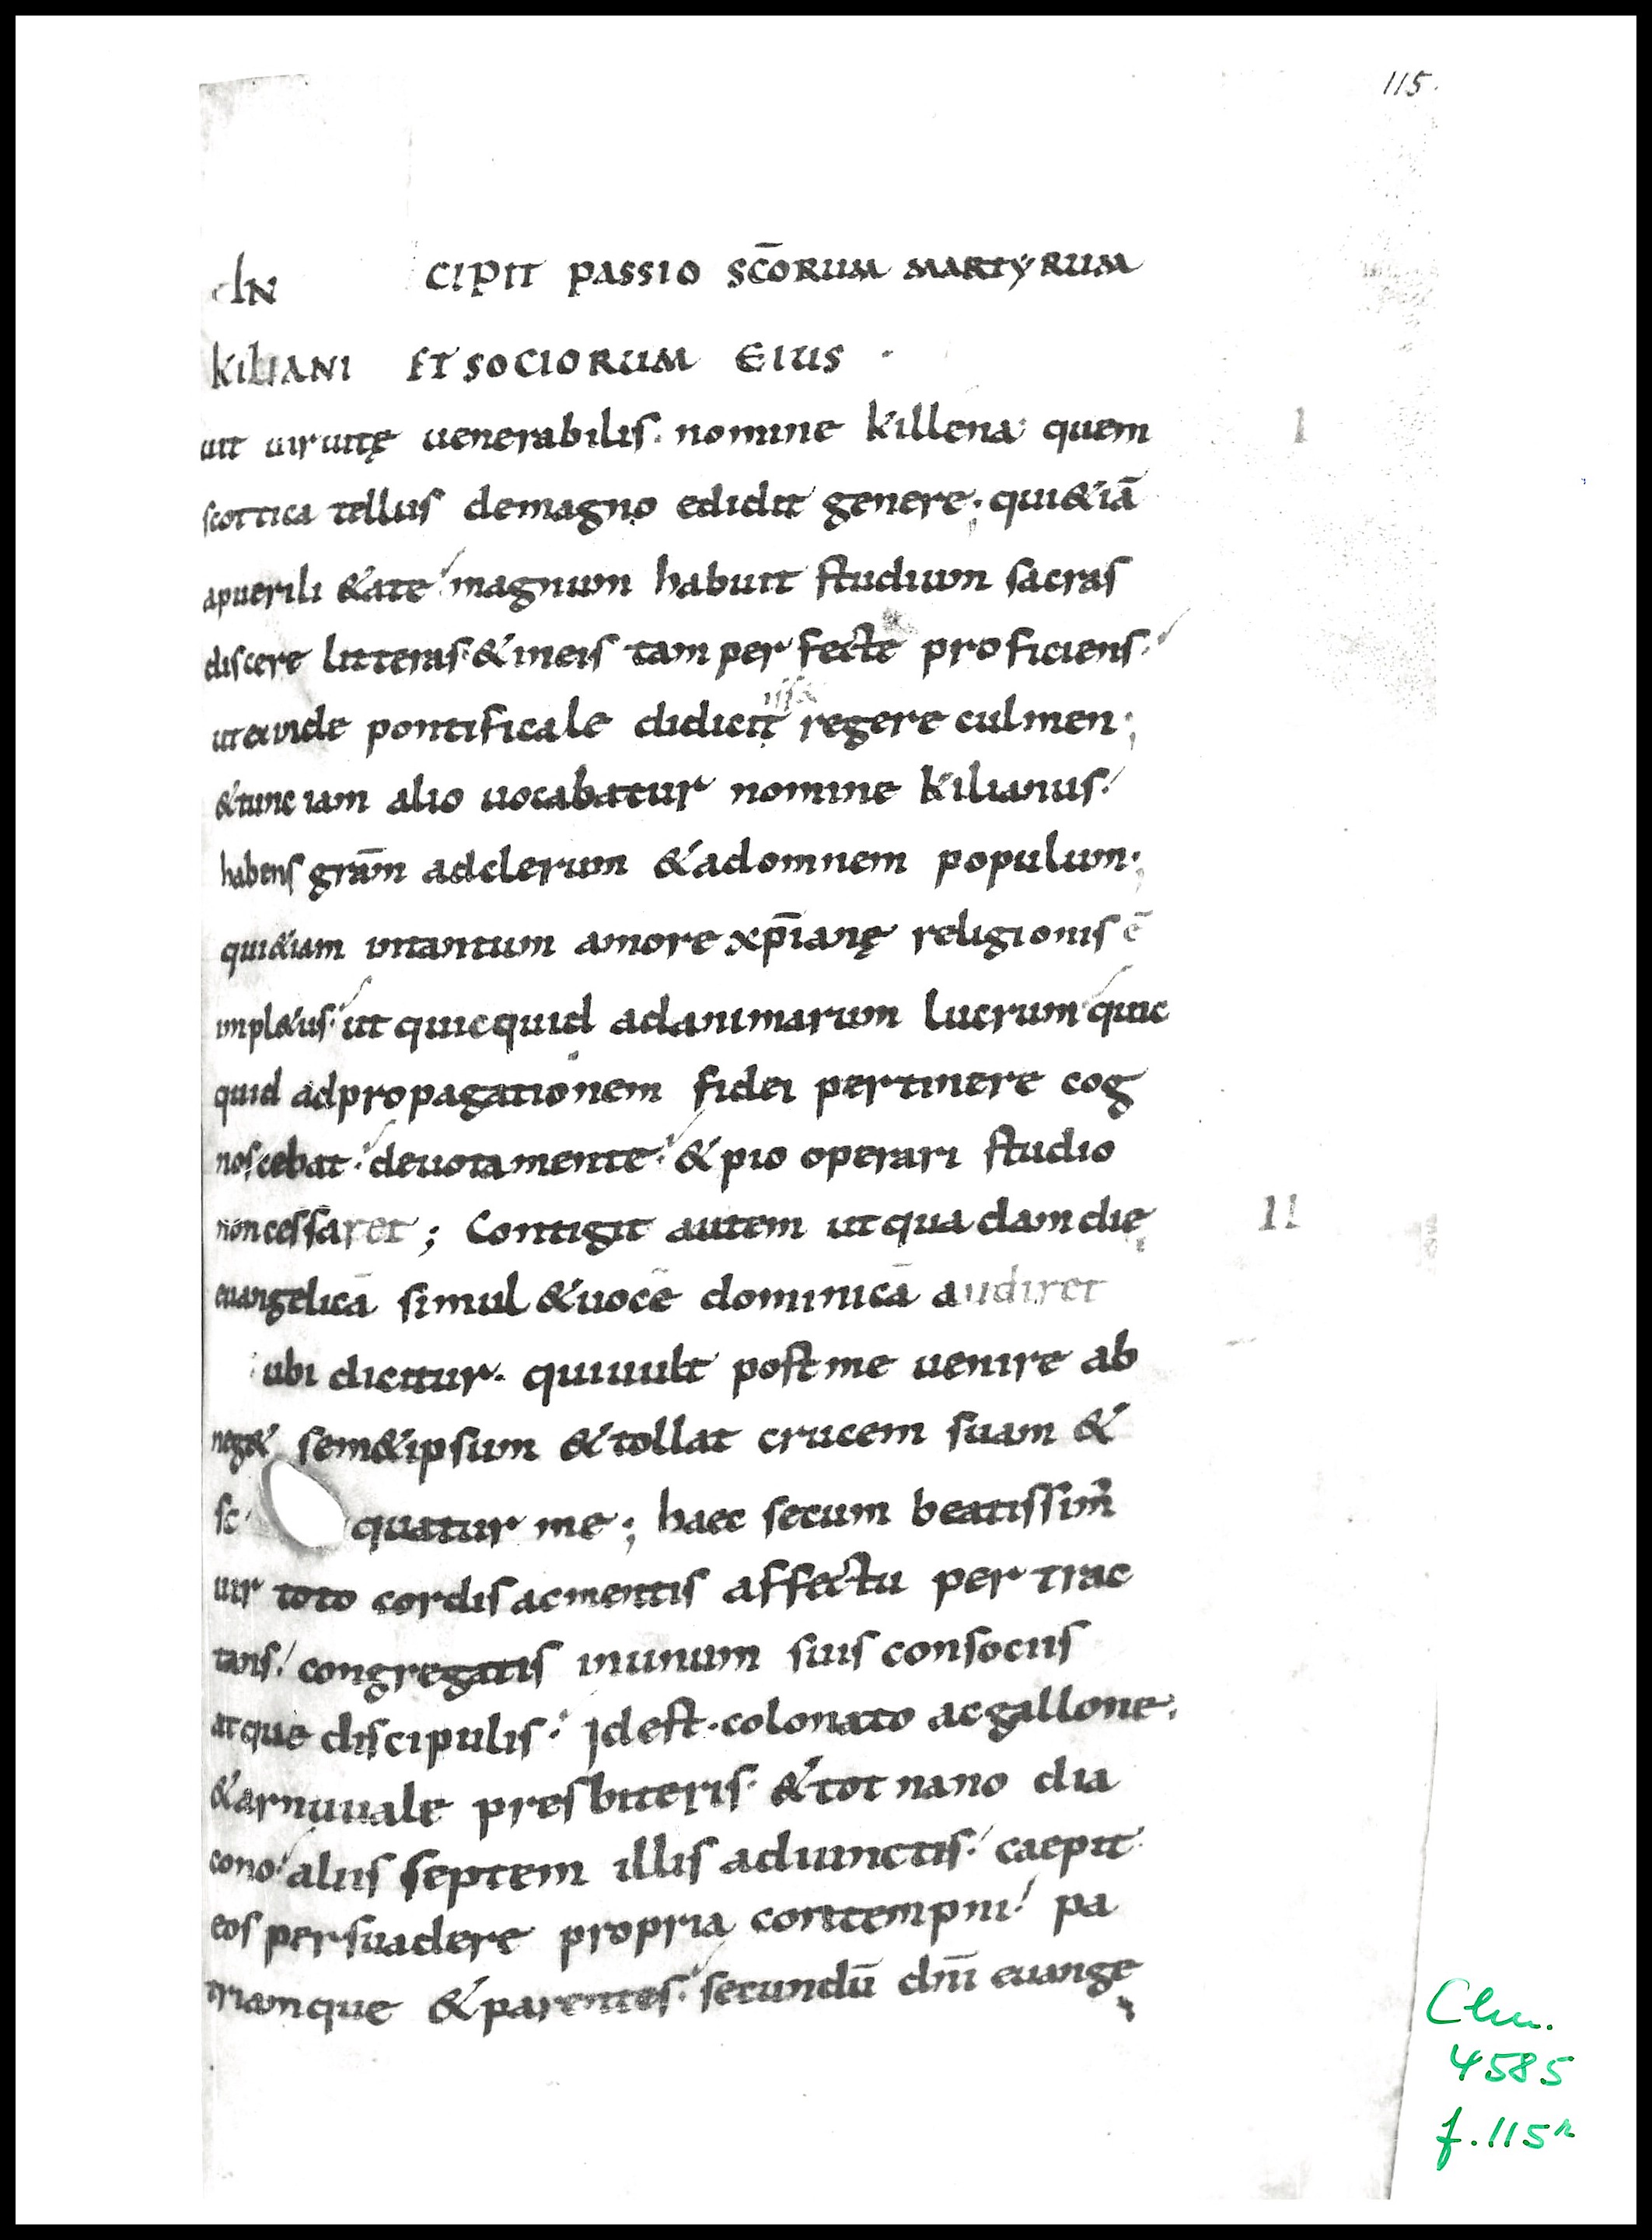 115.
IN CIPIT PASSIO SCŌRUM MARTYRUM
KILIANI ET SOCIORUM EIUS ·
uit uir uitę uenerabilis. nomine killena quem I
scottica tellus demagno edidit genere; qui&iā
apuerili &ate magnum habuit studium sacras
discere litteras. &ineis tam perfecte proficiens.
utexinde pontificale didicit regere culmen;
&tunc iam alio uocabatur nomine kilianus.
habens grām adclerum &adomnem populum;
qui&iam intantum amore xp̄ianę religionis ē
impl&us. ut quicquid adanimarum lucrum quic
quid adpropagationem fidei pertinere cog
noscebat. deuotamente. &pio operari studio
noncessaret; Contigit autem utquadamdie II
euangelicā simul &uocē dominicā audiret
ubi dicitur. quiuult postme uenire ab
neg& sem&ipsum &tollat crucem suam &
se quatur me; haec secum beatissim'
uir toto cordis acmentis affectu pertrac
tans. congregatis inunum suis consociis
atque discipulis. Idest. colonato acgallone.
&arnuuale presbiteris. &totnano dia
cono. aliis septem illis adiunctis. caepit
eos persuadere propria contempni. pa
triamque &parentes. secundū dn̄i euange
Clm.
4585
f. 115r